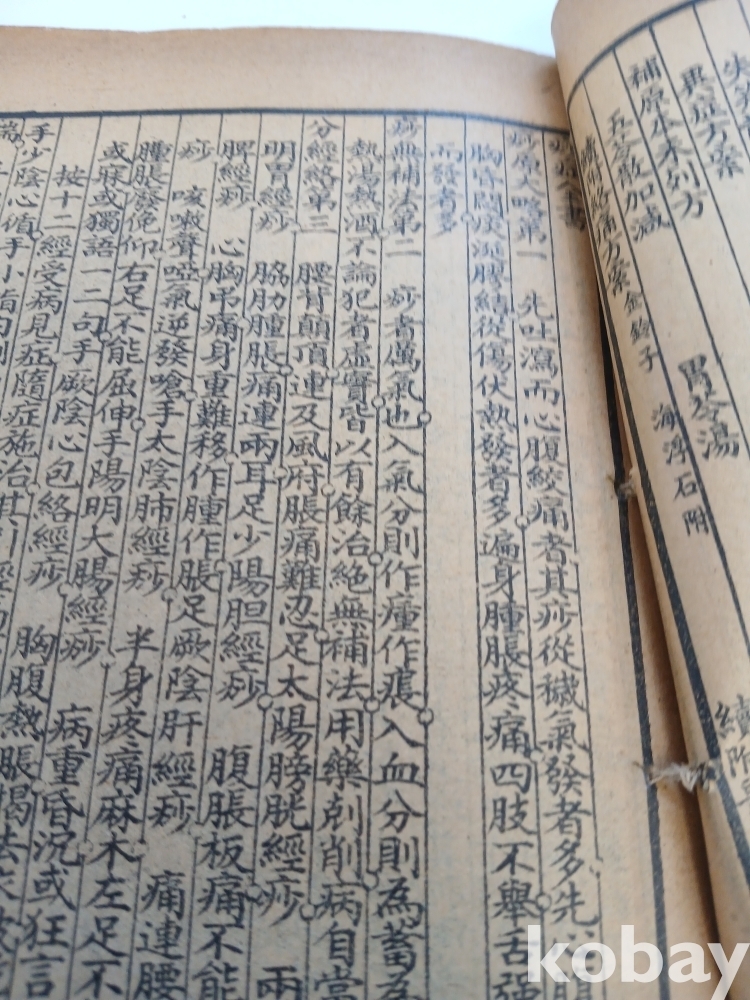 補原本未列方
異症方案
五苓散加減
胃苓湯
金鈴子
海浮石
附
續附
痧原大略第一 先吐瀉而心腹絞痛者其痧從穢氣發者多先
胸昏悶痰涎膠結從傷伏熱發者多遍身腫脹疼痛四肢不舉舌強
而發者多
痧無補法第二 痧者厲氣也入氣分則作腫作瘬入血分則為蓄為
熱湯熱酒不論犯者虛實皆以有餘治絕無補法用藥剋削病自當
分經絡第三 腰背顛頂連及風府脹痛難忍足太陽膀胱經痧 兩
明胃經痧 脇肋腫脹痛連兩耳足少陽胆經痧 腹脹板痛不能
脾經痧 心胸吊痛身重難移作腫作脹足厥陰肝經痧 痛連腰
痧 咳嗽聲啞氣逆發嗆手太陰肺經痧 半身疼痛麻木左足不
腫脹廢俛仰右足不能屈伸手陽明大腸經痧 病重昏況或狂言
或麻或獨語一二句手厥陰心包絡經痧 胸腹熱脹揭去衣被
按十二經受病見症隨症施治其引經
手少陰心循手小指內側